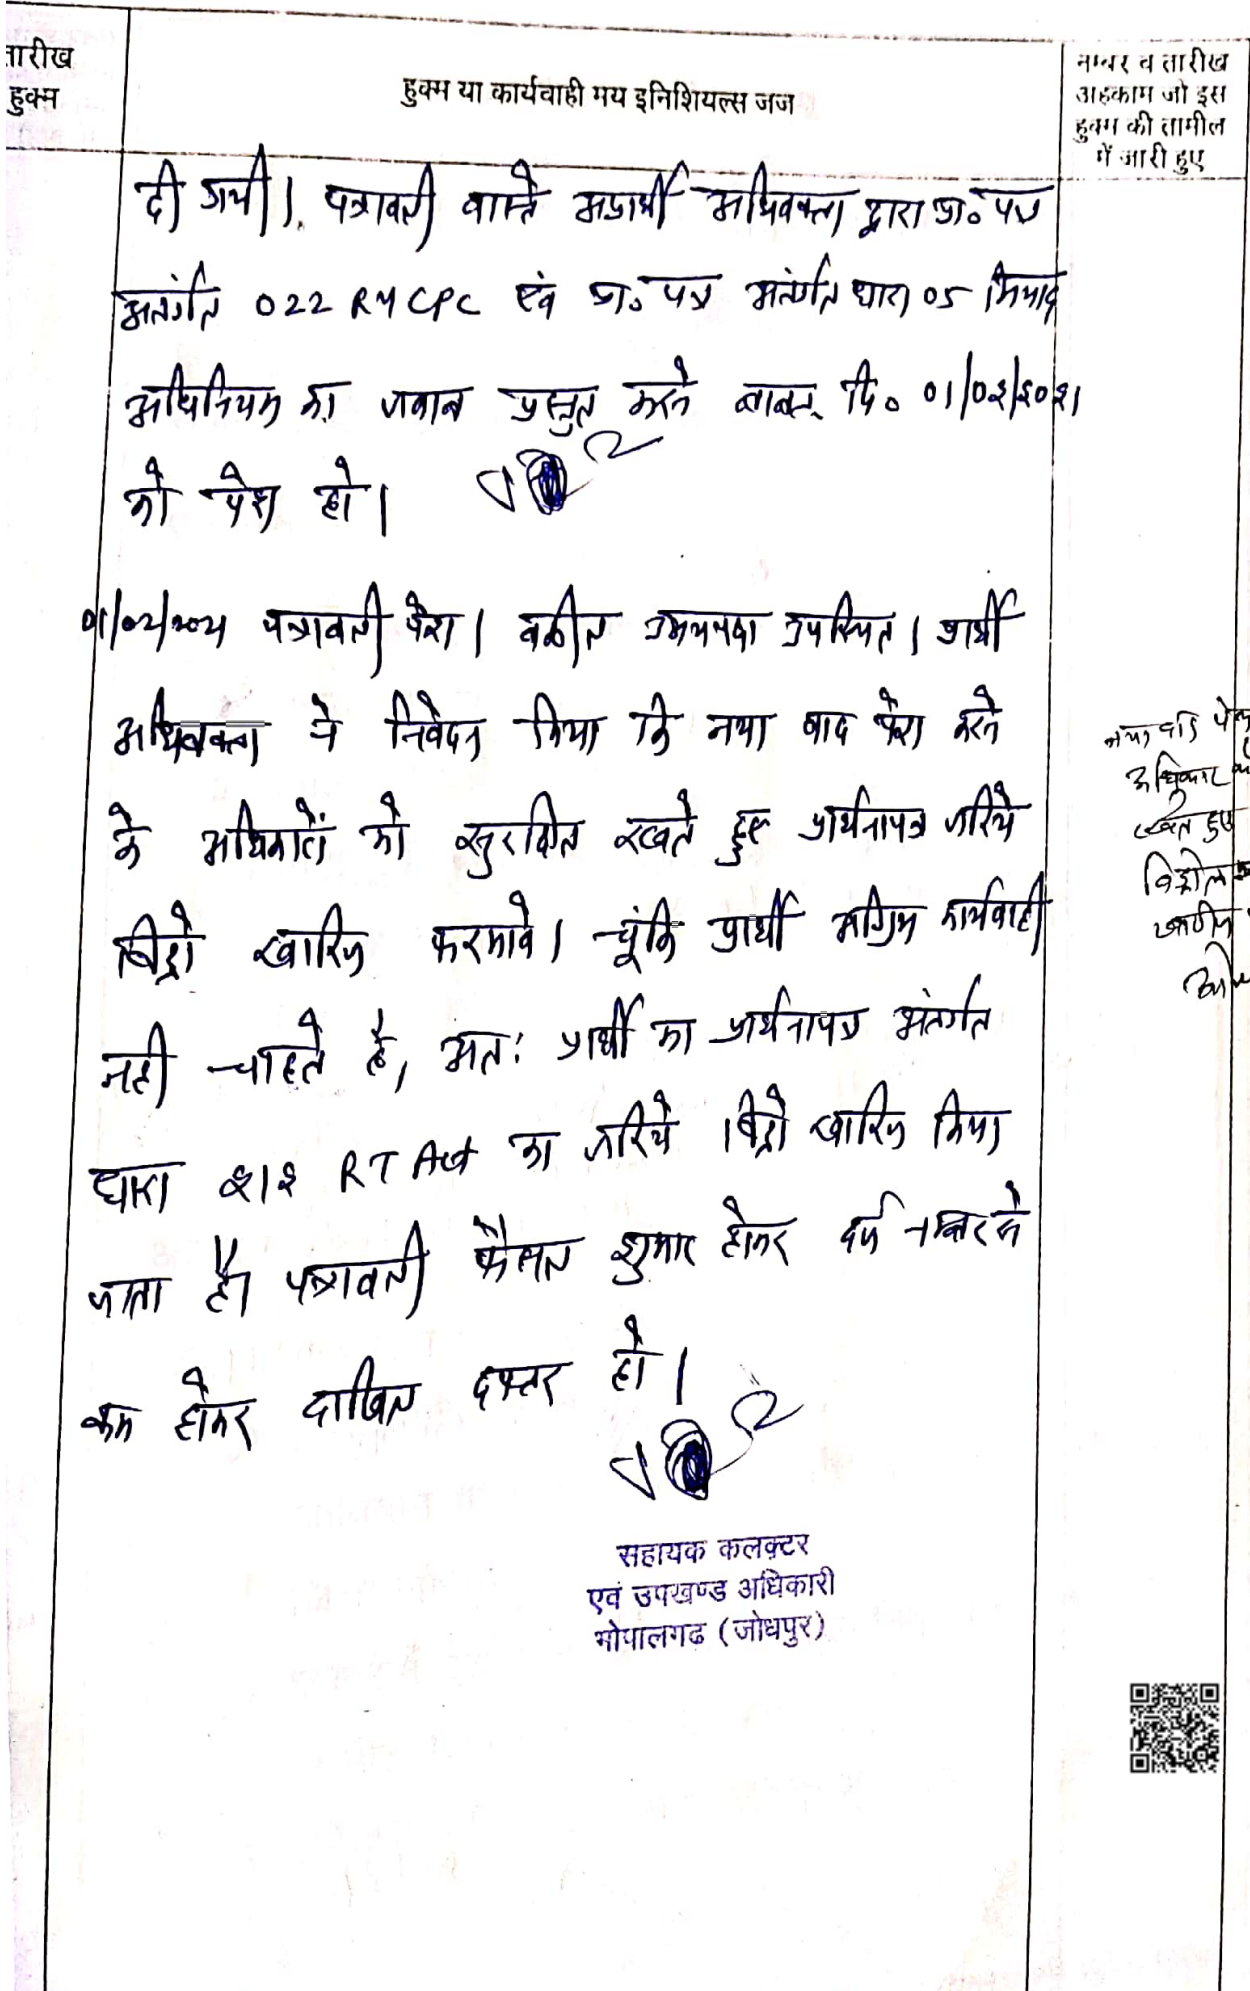 तारीख
हुक्म
हुक्म या कार्यवाही मय इनिशियल्स जज
नम्बर व तारीख
अहकाम जो इस
हुक्म की तामील
में जारी हुए
दी गयी। पत्रावली वास्ते अप्रार्थी अधिवक्ता द्वारा प्रा० पत्र
अन्तर्गत O22 R4 CPC एवं प्रा० पत्र अंतर्गत धारा 05 मियाद
अधिनियम का जवाब प्रस्तुत करने बाबत् दि० 01/02/2021
को पेश हो।
01/02/2021 पत्रावली पेश। वकील उभयपक्ष उपस्थित। प्रार्थी
अधिवक्ता ने निवेदन किया कि नया वाद पेश करने
के अधिकारों को सुरक्षित रखते हुए प्रार्थनापत्र जरिये
विड्रो खारिज फरमावे। चूंकि प्रार्थी अग्रिम कार्यवाही
नही चाहते है, अतः प्रार्थी का प्रार्थनापत्र अंतर्गत
धारा 212 RT Act का जरिये विड्रो खारिज किया
जाता है। पत्रावली फैसल शुमार होकर दर्ज नम्बर से
कम होकर दाखिल दफ्तर हो।
नया वाद
अधिकार
हुए
सहायक कलक्टर
एवं उपखण्ड अधिकारी
भोपालगढ (जोधपुर)